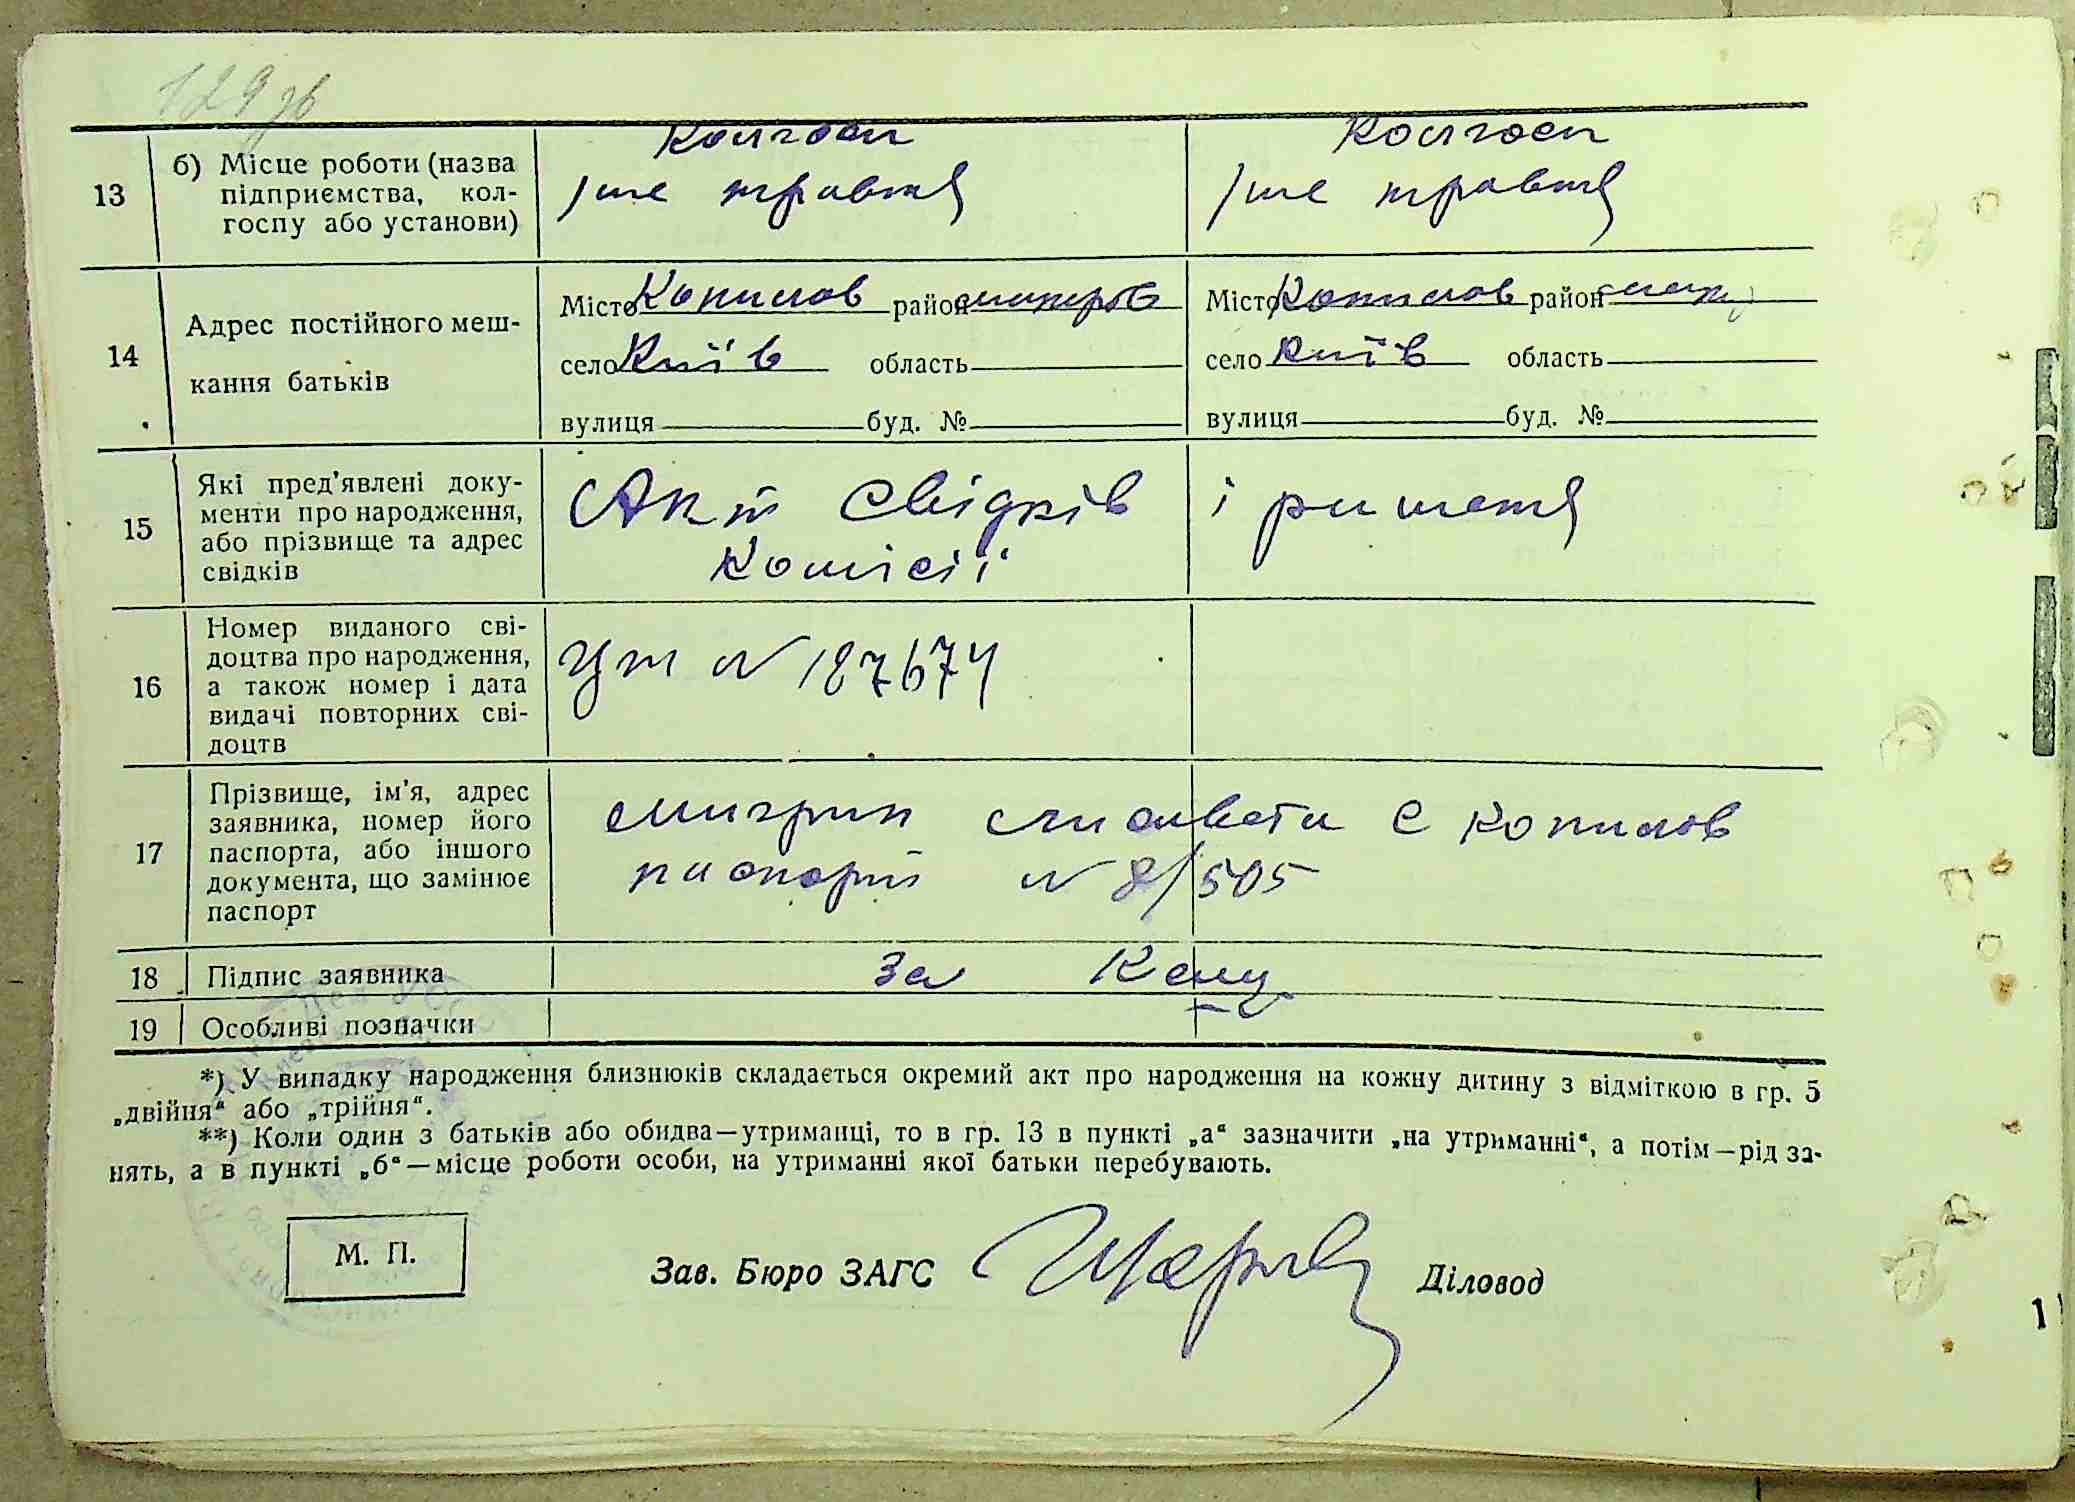 129 зв
13 б) Місце роботи (назва підприємства, колгоспу або установи) Колгосп Колгосп
1ше травня 1ше травня
14 Адрес постійного мешкання батьків
Місто Копилов район Макаров Місто Копилов район Макар
село Київ область село Київ область
вулиця буд. № вулиця буд. №
15 Які пред'явлені документи про народження, або прізвище та адрес свідків
Акт свідків і рішення
комісії
16 Номер виданого свідоцтва про народження, а також номер і дата видачі повторних свідоцтв
№ 187674
17 Прізвище, ім'я, адрес заявника, номер його паспорта, або іншого документа, що замінює паспорт
с Копилов
паспорт № 505
18 Підпис заявника За
19 Особливі позначки
*) У випадку народження близнюків складається окремий акт про народження на кожну дитину з відміткою в гр. 5
„двійня“ або „трійня“.
**) Коли один з батьків або обидва—утриманці, то в гр. 13 в пункті „а“ зазначити „на утриманні“, а потім—рід за-
нять, а в пункті „б“—місце роботи особи, на утриманні якої батьки перебувають.
М. П.
Зав. Бюро ЗАГС Діловод